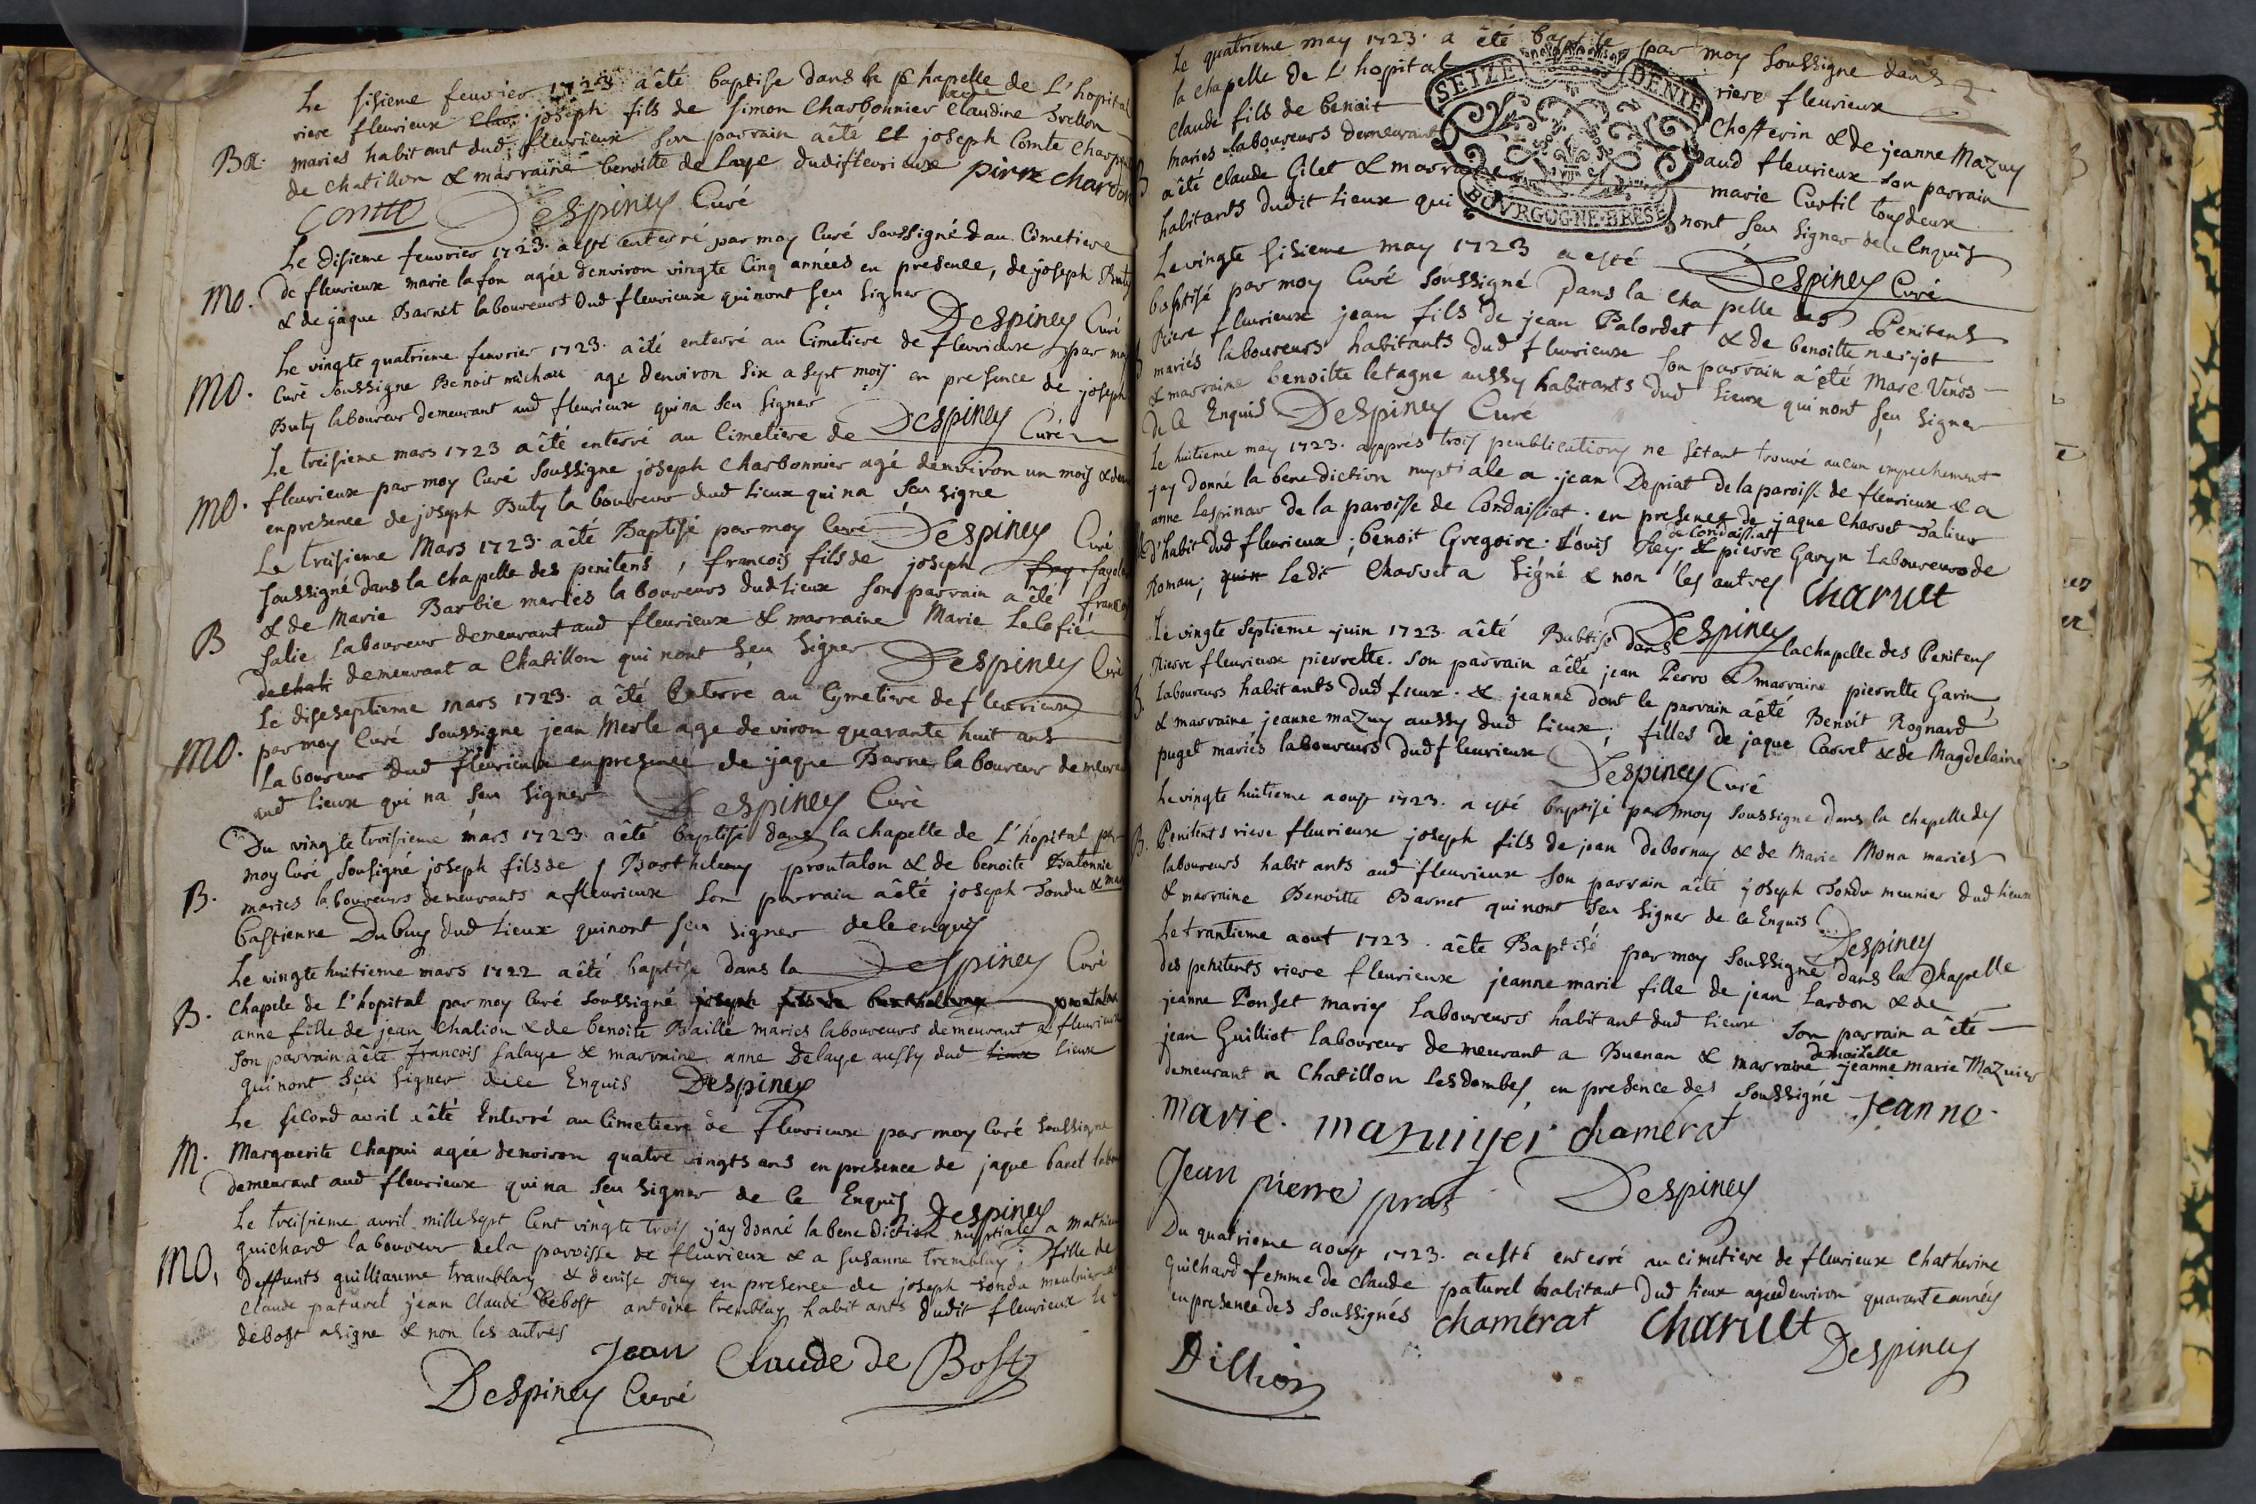 Le sisieme feuvrier 1723 a êté baptise dans la chapelle de L'hopital
riere fleurieux joseph fils de simon Charbonnier Claudine
Ba. maries habitant dud fleurieux son parrain a êté et joseph Comte
de chatillon & marraine benoitte de Laye dudit fleurieux pirre chardon
comte Despiney Curé
Le disieme feuvrier 1723 a esté enterré par moy Curé soussigné au Cimetiere
mo. de fleurieux marie lafon agée denviron vingte Cinq annees en presence, de joseph Buty
& de jaque Barnet laboureurs dud fleurieux qui nont sçu signer
Despiney Curé
Le vingte quatrieme feuvrier 1723. a êté enterré au Cimetiere de fleurieux par moy
mo. Curé soussigne Benoit michau agé denviron six a sept mois en presence de joseph
Buty laboureur demeurant aud fleurieux qui na sçu signer
Despiney Curé
Le treisieme mars 1723 a êté enterré au Cimetiere de
mo. fleurieux par moy Curé soussigne joseph charbonnier agé denviron un mois &
en presence de joseph Buty la boureur dud Lieux qui na sçu signe
Despiney Curé
Le treisieme Mars 1723. a êté Baptisé par moy Curé
soussigné dans la chapelle des penitens, francois fils de joseph
B & de Marie Barbie maries laboureurs dud Lieux son parrain a êté francois
salie Laboureur demeurant aud fleurieux & marraine Marie
demeurant a Chatillon qui nont sçu signer Despiney Curé
Le diseseptieme mars 1723. a êté Enterre au Cymetiere de fleurieux
mo. par moy Curé soussigne jean Merle age de viron quarante huit ans
Laboureur dud fleurieux en presence de jaque Barne laboureur demeurant
aud Lieux qui na sçu signer Despiney Curé
Du vingte troisieme mars 1723. a êté baptisé dans la chapelle de L'hopital par
moy Curé sousigné joseph fils de Barthelemy prontalon & de benoite Batonnie
B. maries laboureurs demeurants a fleurieux son parrain a êté joseph Tondu &
bastienne Dubuy dud Lieux qui nont sçu signer de ce enquis
Despiney Curé
Le vingte huitieme mars 1722 a êté baptise dans la
B. Chapele de L'hopital par moy Curé soussigné joseph fils de Barthelemy prontalon
anne fille de jean Chalion & de benoite Baille maries laboureurs demeurant a fleurieux
son parrain a êté francois salaye & marraine anne Delaye aussy dud lieux Lieux
qui nont sçu signer de ce Enquis Despiney
Le second avril a êté Enterré au Cimetiere de fleurieux par moy Curé soussigne
M. Marguerite Chapui agée denviron quatre vingts ans en presence de jaque
demeurant aud fleurieux qui na sçu signer de ce Enquis Despiney
Le treisieme avril mille sept Cent vingte trois jay donné la benediction nuptiale a mathieu
mo, guichard laboureur de la paroisse de fleurieux & a susanne tremblay; fille de
deffunts guilliaume tramblay & denise Frey en presence de joseph Tondu meulnier
Claude paturel jean Claude debost antoine tremblay habitants dudit fleurieux
debost a signe & non les autres
Jean Claude de Bost
Despiney Curé
Le quatrieme may 1723. a êté par moy soussigne dans
la chapelle de L'hopital riere fleurieux
Claude fils de benoit Chofferin & de jeanne Mazuy
maries laboureurs demeurant aud fleurieux son parrain
a êté Claude Gilet & marraine marie Curtil tous deux
habitants dudit Lieux qui nont sçu signer de ce Enquis
SEIZE DENIE
BOVRGOGNE-BRESE
Despiney Curé
Le vingte sisieme may 1723 a esté
baptisé par moy Curé soussigné dans la cha pelle des Penitens
Riere fleurieux jean fils de jean Palordet & de benoitte nerjot
mariés laboureurs habitants dud fleurieux son parrain a êté Marc
& marraine benoitte letagne aussy habitants dud Lieux qui nont sçu signer
de ce Enquis Despiney Curé
Le huitieme may 1723. apprés trois peublications ne setant trouvé aucun empechement
jay donné la benediction nuptiale a jean Depriat de la paroisse de fleurieux & a
anne Lespinar de la paroisse de Condaissiat. en presence de jaque Charvet Talieur
de Condaissiat
d'habit dud fleurieux; benoit Gregoire. Louis Rey & pierre Garyn Laboureurs de
Roman; Le dit Charvet a signé & non les autres Charuet
Despiney
Le vingte septieme juin 1723. a êté Babtise dans la chapelle des Penitens
Riere fleurieux pierrette. son parrain a êté jean Perro & marraine pierrette Garin,
Laboureurs habitants dud Lieux. & jeanne dont le parrain a êté Benoit Rognard
& marraine jeanne mazuy aussy dud Lieux; filles de jaque Carvet & de Magdelaine
puget mariés laboureurs dud fleurieux Despiney Curé
Le vingte huitieme aoust 1723. a esté baptisé par moy soussigne dans la chapelle des
B. Penitents riere fleurieux joseph fils de jean debornay & de Marie Mona maries
laboureurs habitants aud fleurieux son parrain a êté joseph Tondu meunier dud Lieux
& marraine Benoitte Barnet qui nont sçu signer de ce Enquis
Despiney
Le trantieme aout 1723. a êté Baptisé par moy soussigné dans la Chapelle
des penitents riere fleurieux jeanne marie fille de jean Lardon & de
jeanne Ponset maries laboureurs habitant dud Lieux son parrain a êté
jean Guilliot laboureur demeurant a Buenan & marraine demoiselle jeanne marie Mazuier
demeurant a Chatillon Les dombes, en presence des soussigné jeanne.
marie. mazuiyer chamerat
Jean pierre pras Despiney
Du quatrieme aoust 1723. a esté enterré au cimetiere de fleurieux Chatherine
guichard femme de Claude paturel habitant dud Lieux agée denviron quarante années
en presence des soussignés chamerat Charuet
Despiney
Dillion